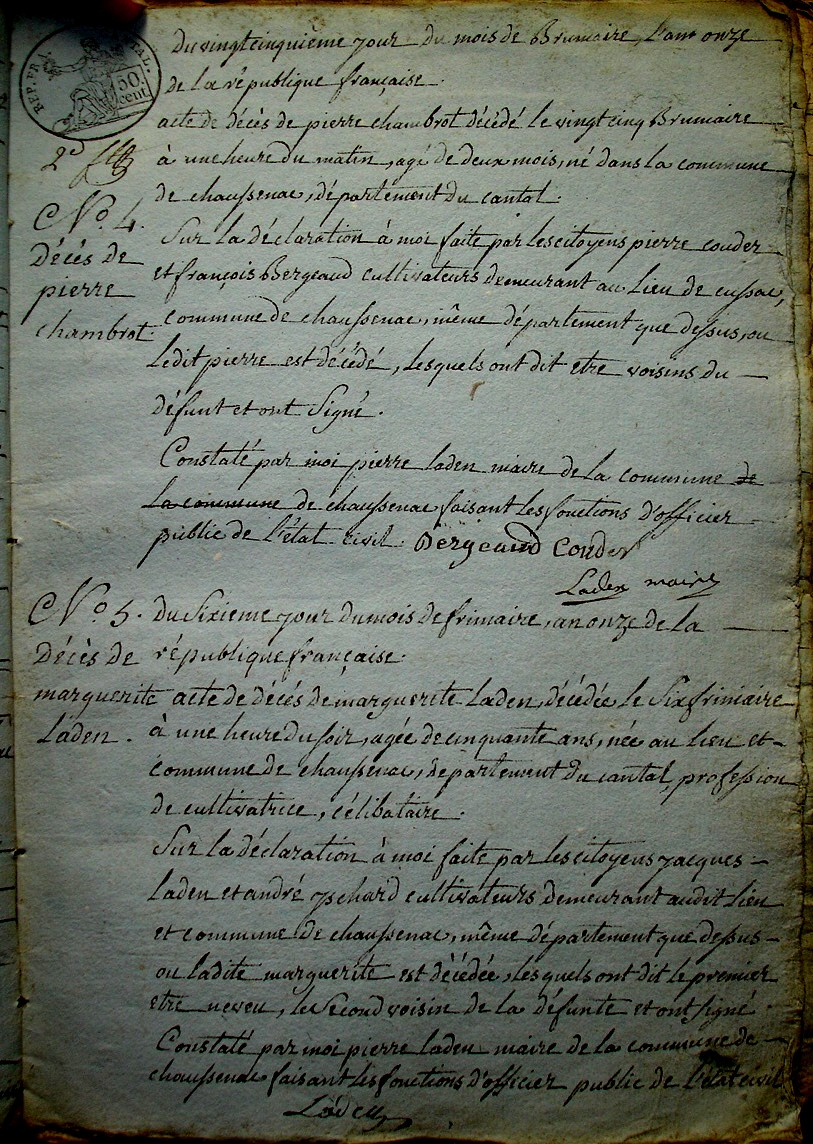 REP. FR. TAL.
50 cent.
2e f.let
Du vingt cinquième jour du mois de Brumaire, l'an onze
de la république française.
acte de décès de pierre chambrot décédé le vingt cinq Brumaire
à une heure du matin, agé de deux mois, né dans la commune
de chaussenac, département du cantal.
No. 4.
Décès de
pierre
chambrot
Sur la déclaration à moi faite par les citoyens pierre couder
et françois Bergeaud cultivateurs demeurant au lieu de cussac,
commune de chaussenac, même département que dessus, ou
ledit pierre est décédé, lesquels ont dit etre voisins du
défunt et ont Signé.
Constaté par moi pierre laden maire de la commune de
la commune de chaussenac faisant les fonctions d'officier
public de l'état civil. Bergeaud Couder
Laden maire
No. 5.
Décès de
marguerite
Laden.
Du Sixieme jour du mois de frimaire, an onze de la
république française.
acte de décés de marguerite Laden, décédée le Six frimaire
à une heure du soir, agée de cinquante ans, née au lieu et
commune de chaussenac, departement du cantal, profession
de cultivatrice, célibataire.
Sur la déclaration à moi faite par les citoyens jacques
laden et andré cultivateurs demeurant audit lieu
et commune de chaussenac, même département que dessus
ou ladite marguerite est décédée, lesquels ont dit le premier
etre neveu, le Second voisin de la défunte et ont signé
Constaté par moi pierre laden maire de la commune de
chaussenac faisant les fonctions d'officier public de l'état civil
Laden